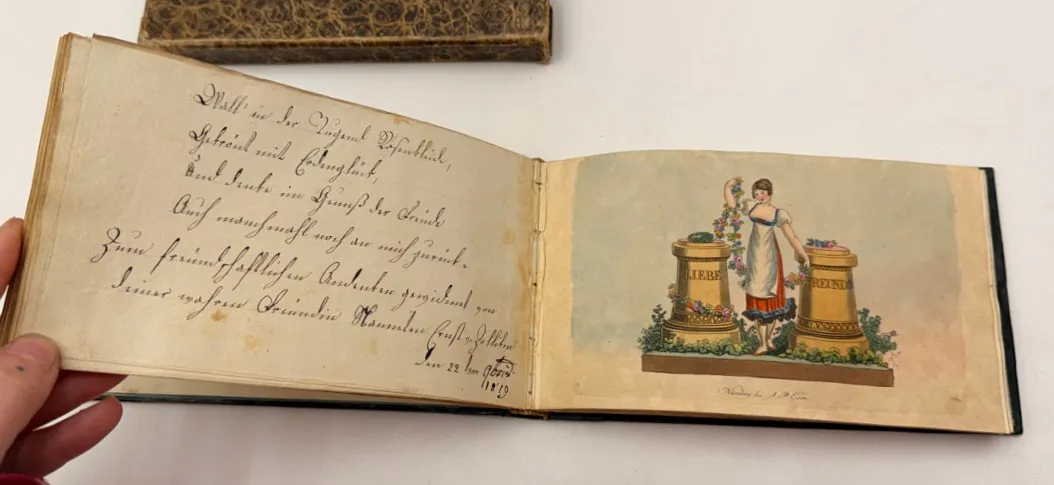 Wall' in der Tugend Rosenblüde,
Gekrönt mit Erdenglück,
Und denke im Genuß der Freude
Auch manchmahl noch an mich zurück.
Zum freündschaftlichen Andenken gewidmet von
deiner wahren Freündin
den 22ten 9bris
1819
LIEBE
FREUND
Nürnberg bei